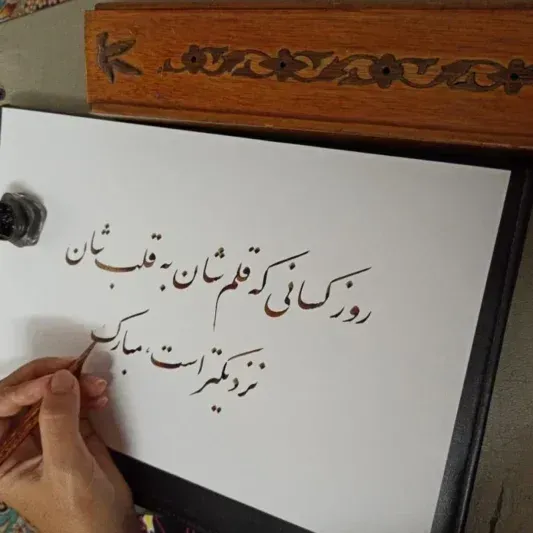 روز کسانی که قلم شان به قلب شان
نزدیکتر است، مبارک